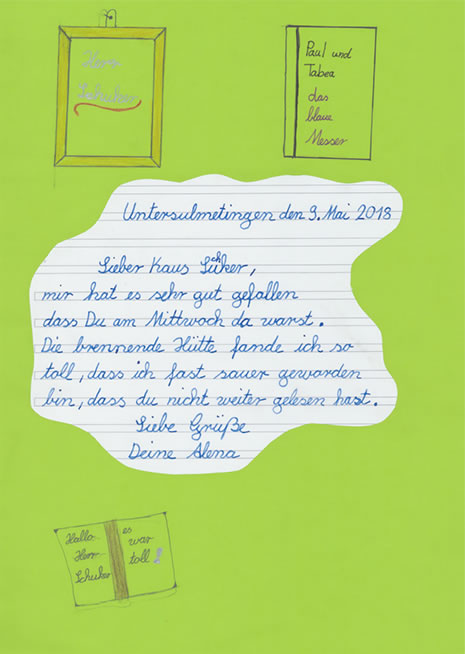 Herr
Paul und
Tabea
das
blaue
Messer
Untersulmetingen den 9. Mai 2018
Lieber Kaus Schüker,
mir hat es sehr gut gefallen
dass Du am Mittwoch da warst.
Die brennende Hütte fande ich so
toll, dass ich fast sauer geworden
bin, dass du nicht weiter gelesen hast.
Liebe Grüße
Deine Alena
Hallo
Herr
Schuker
es
war
toll!